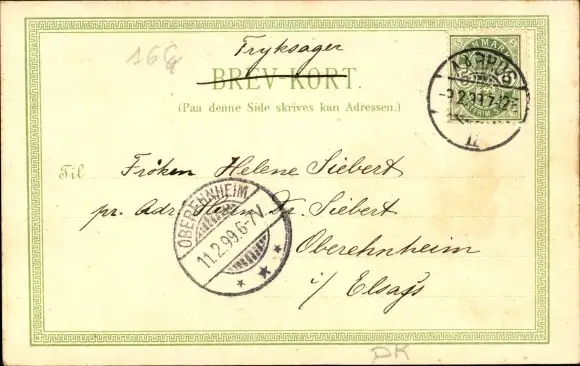 16
Tryksager
BREV-KORT.
(Paa denne Side skrives kan Adressen.)
DANMARK
AARHUS
Til Frøken Helene Siebert
pr. Adr. Herrn Dr. Siebert
Oberehnheim
i/ Elsaßs
OBEREHNHEIM
11.2.99.6-7V.
DK